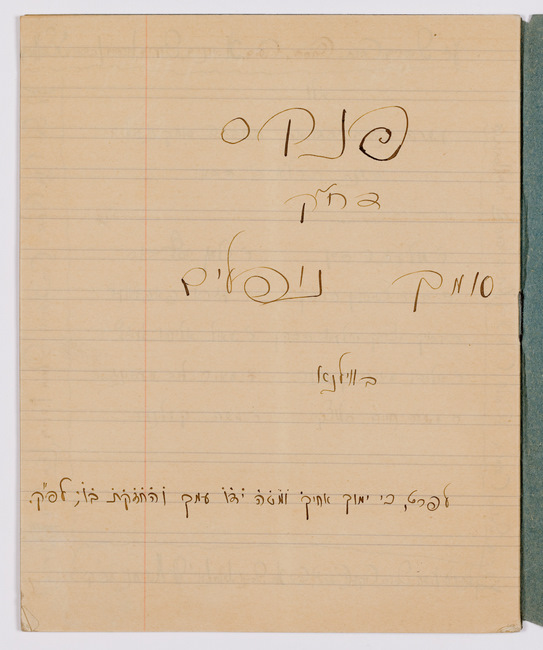 פנקס
דח״ק
סומך נופלים
בווילנא
לפרט, כי ימוך אחיך ומטה ידו עמך והחזקת בו; לפ״ק.